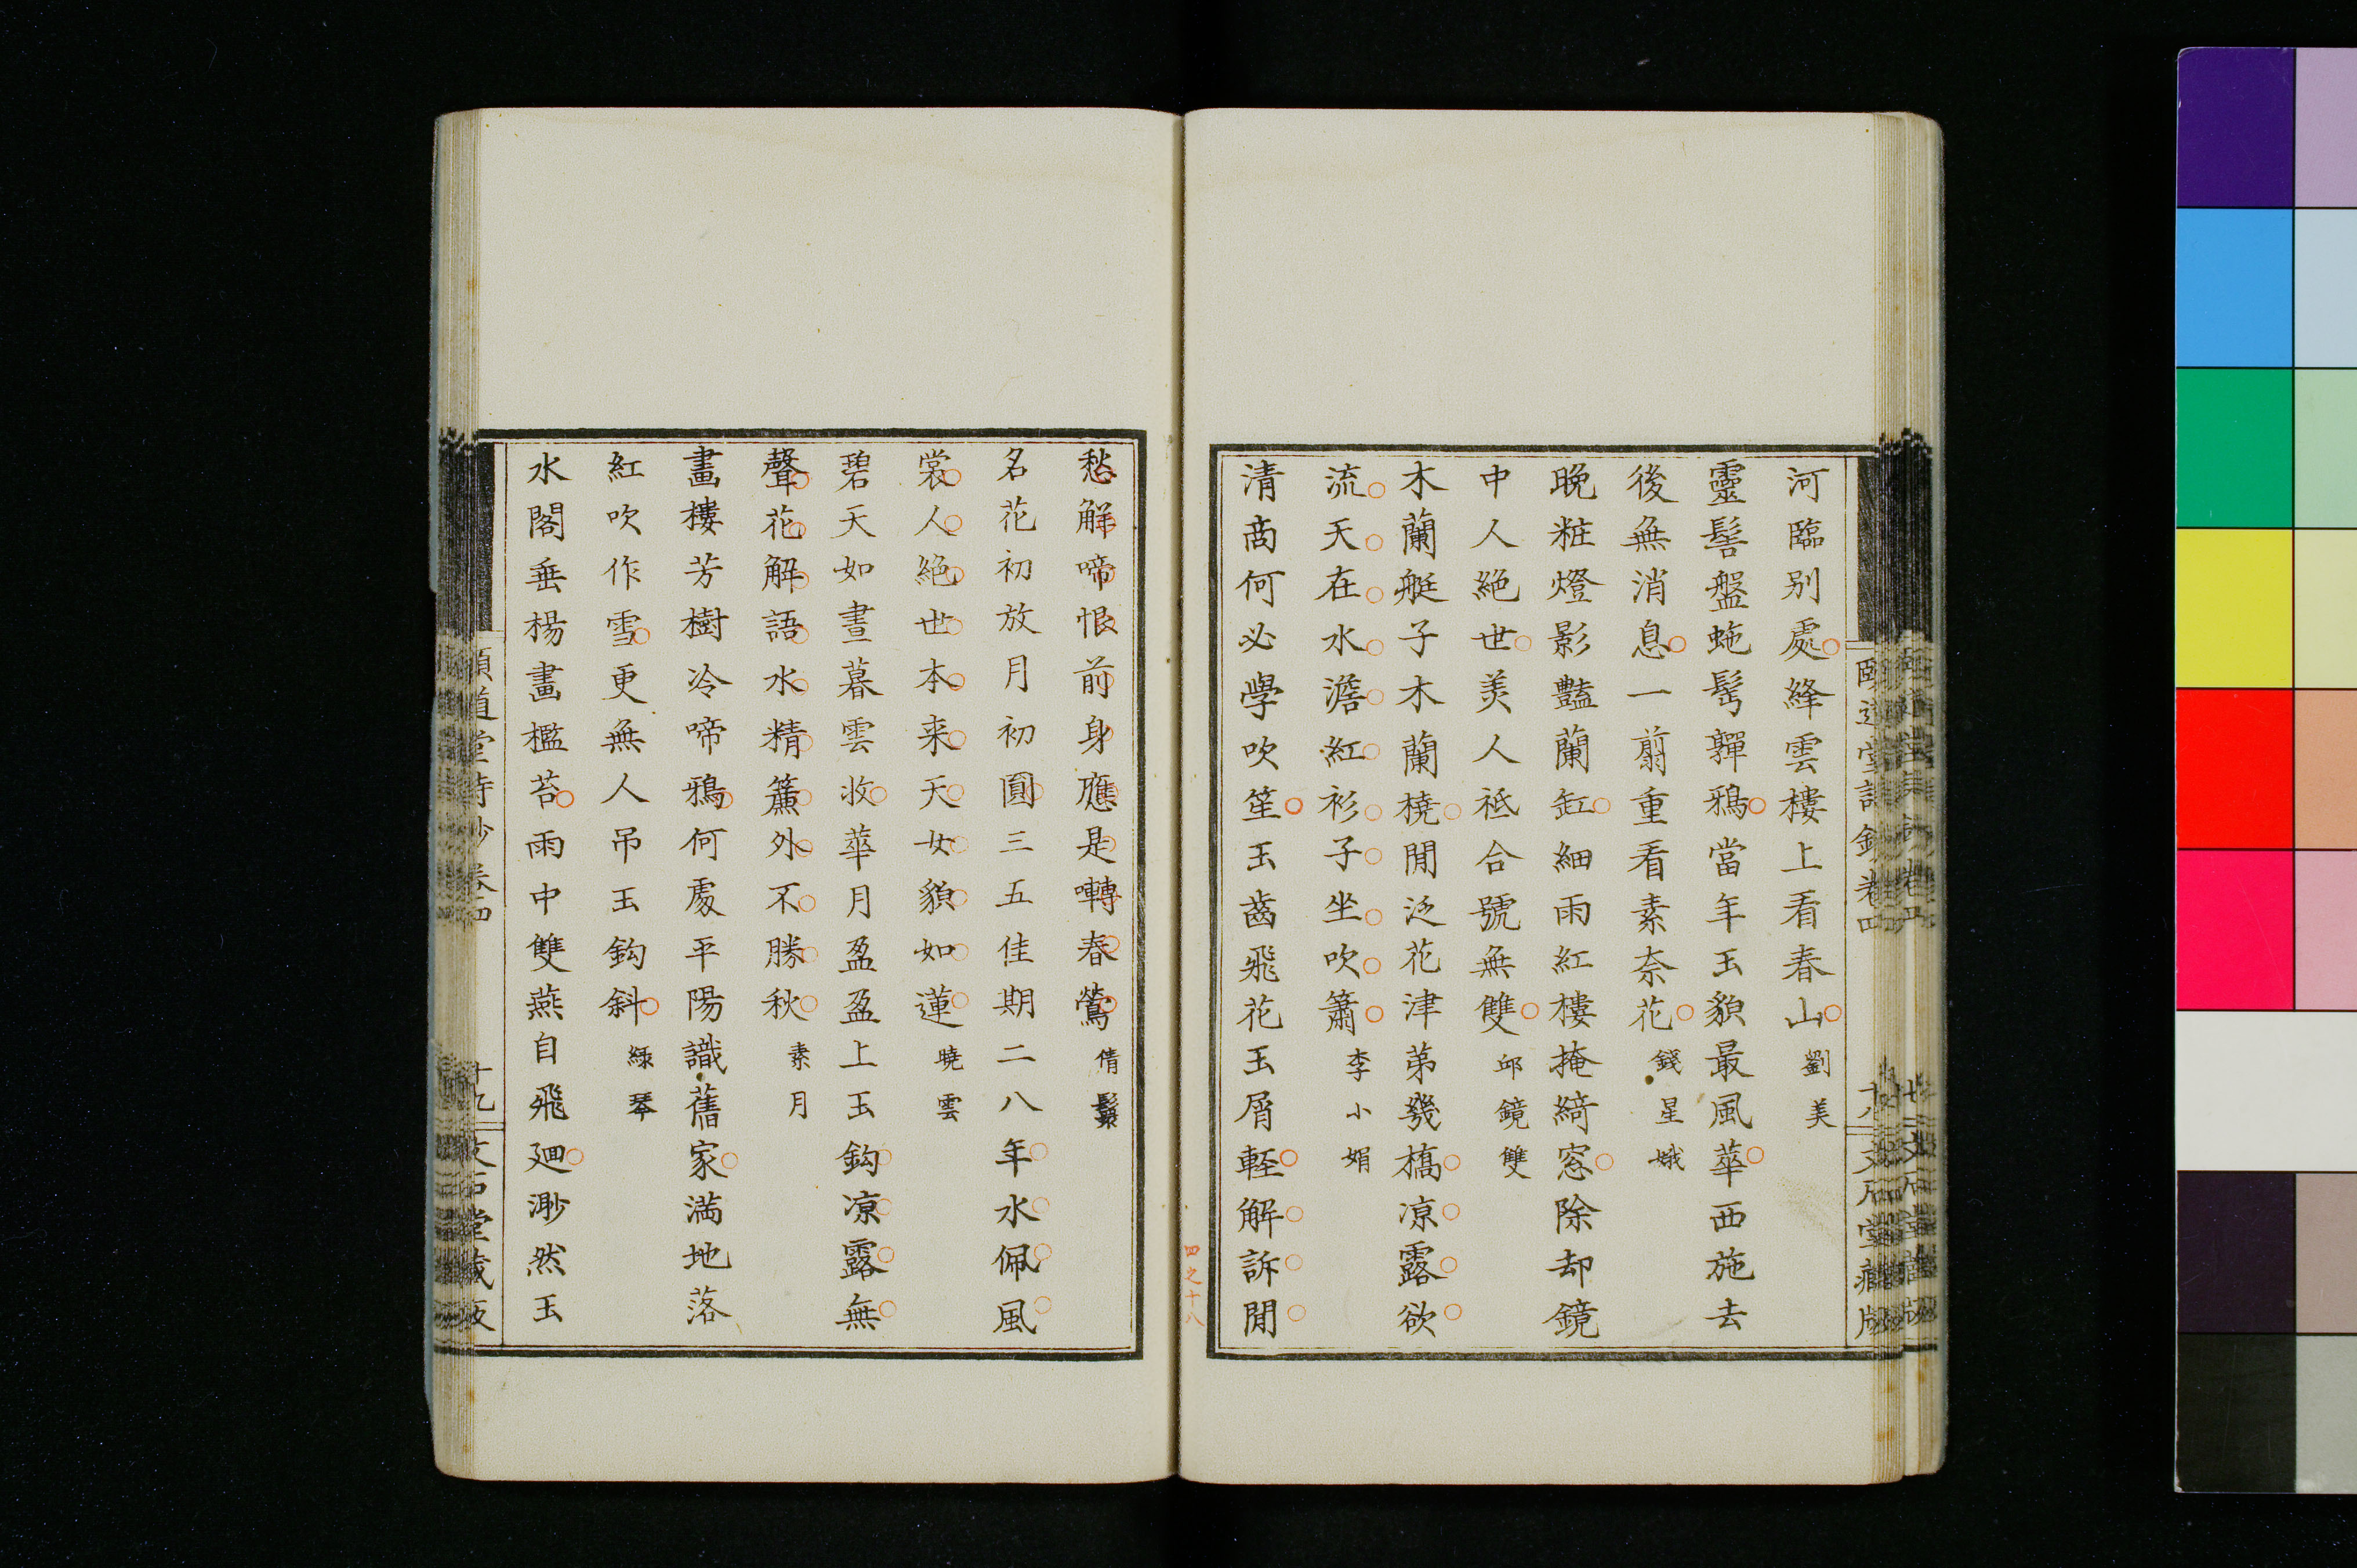 河臨別處絳雲樓上看春山劉美
靈髻盤蛇髩嚲鴉當年玉貌最風華西施去
後無消息一翦重看素奈花錢星娥
晚粧燈影豔蘭缸細雨紅樓掩綺窓除却鏡
中人絕世美人祗合號無雙邱鏡雙
木蘭艇子木蘭橈閒泛花津第幾橋凉露欲
流天在水澹紅衫子坐吹簫李小娟
清商何必學吹笙玉齒飛花玉屑輕解訴閒
四之十八
愁解啼恨前身應是囀春鶯倩鬟
名花初放月初圓三五佳期二八年水佩風
裳人絕世本来天女貌如蓮曉雲
碧天如晝暮雲收華月盈盈上玉鈎凉露無
聲花解語水精簾外不勝秋素月
畫樓芳樹冷啼鴉何處平陽識舊家滿地落
紅吹作雪更無人吊玉鈎斜綠琴
水閣垂楊畫檻苔雨中雙燕自飛廻渺然玉
頤道堂詩鈔卷四 十九 文石堂藏版